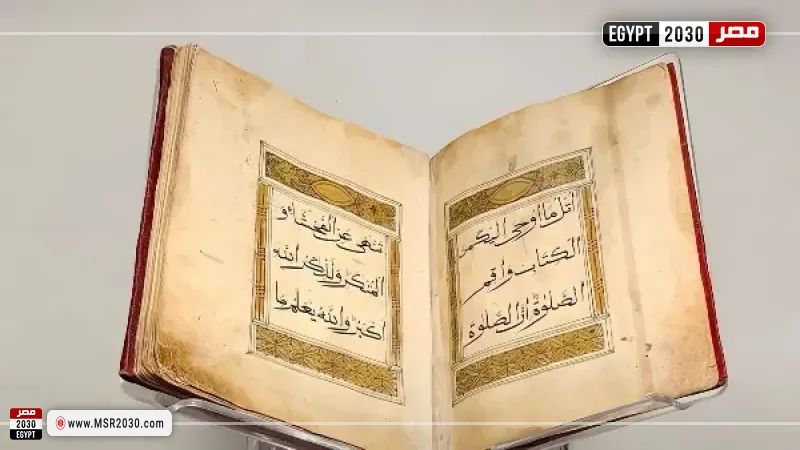 EGYPT 2030 مصر
اتل ما اوحى اليك من
الكتاب واقم
الصلوة ان الصلوة
تنهى عن الفحشاء و
المنكر ولذكر الله
اكبر والله يعلم ما
مصر
2030
EGYPT
www.MSR2030.com